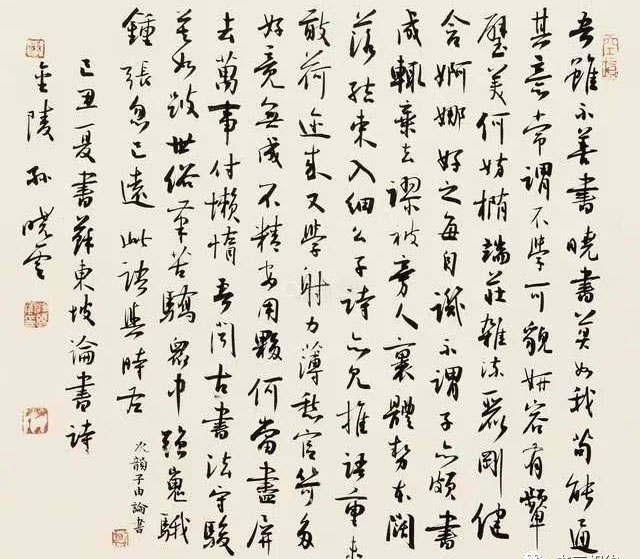 吾雖不善書曉書莫如我苟能通
其意常謂不學可貌妍容有顰
璧美何妨橢端莊雜流麗剛健
含婀娜好之每自譏不謂子亦頗書
成輒棄去謬被旁人裹體勢本闊
落結束入細么子詩亦見推語重未
敢荷邇來又學射力薄愁官笴多
好竟無成不精安用夥何當盡屏
去萬事付懶惰吾聞古書法守駿
莫如跛世俗筆苦驕衆中強嵬騀
鍾張忽已遠此語與時左
次韻子由論書
己丑夏書蘇東坡論書詩
金陵孫曉雲